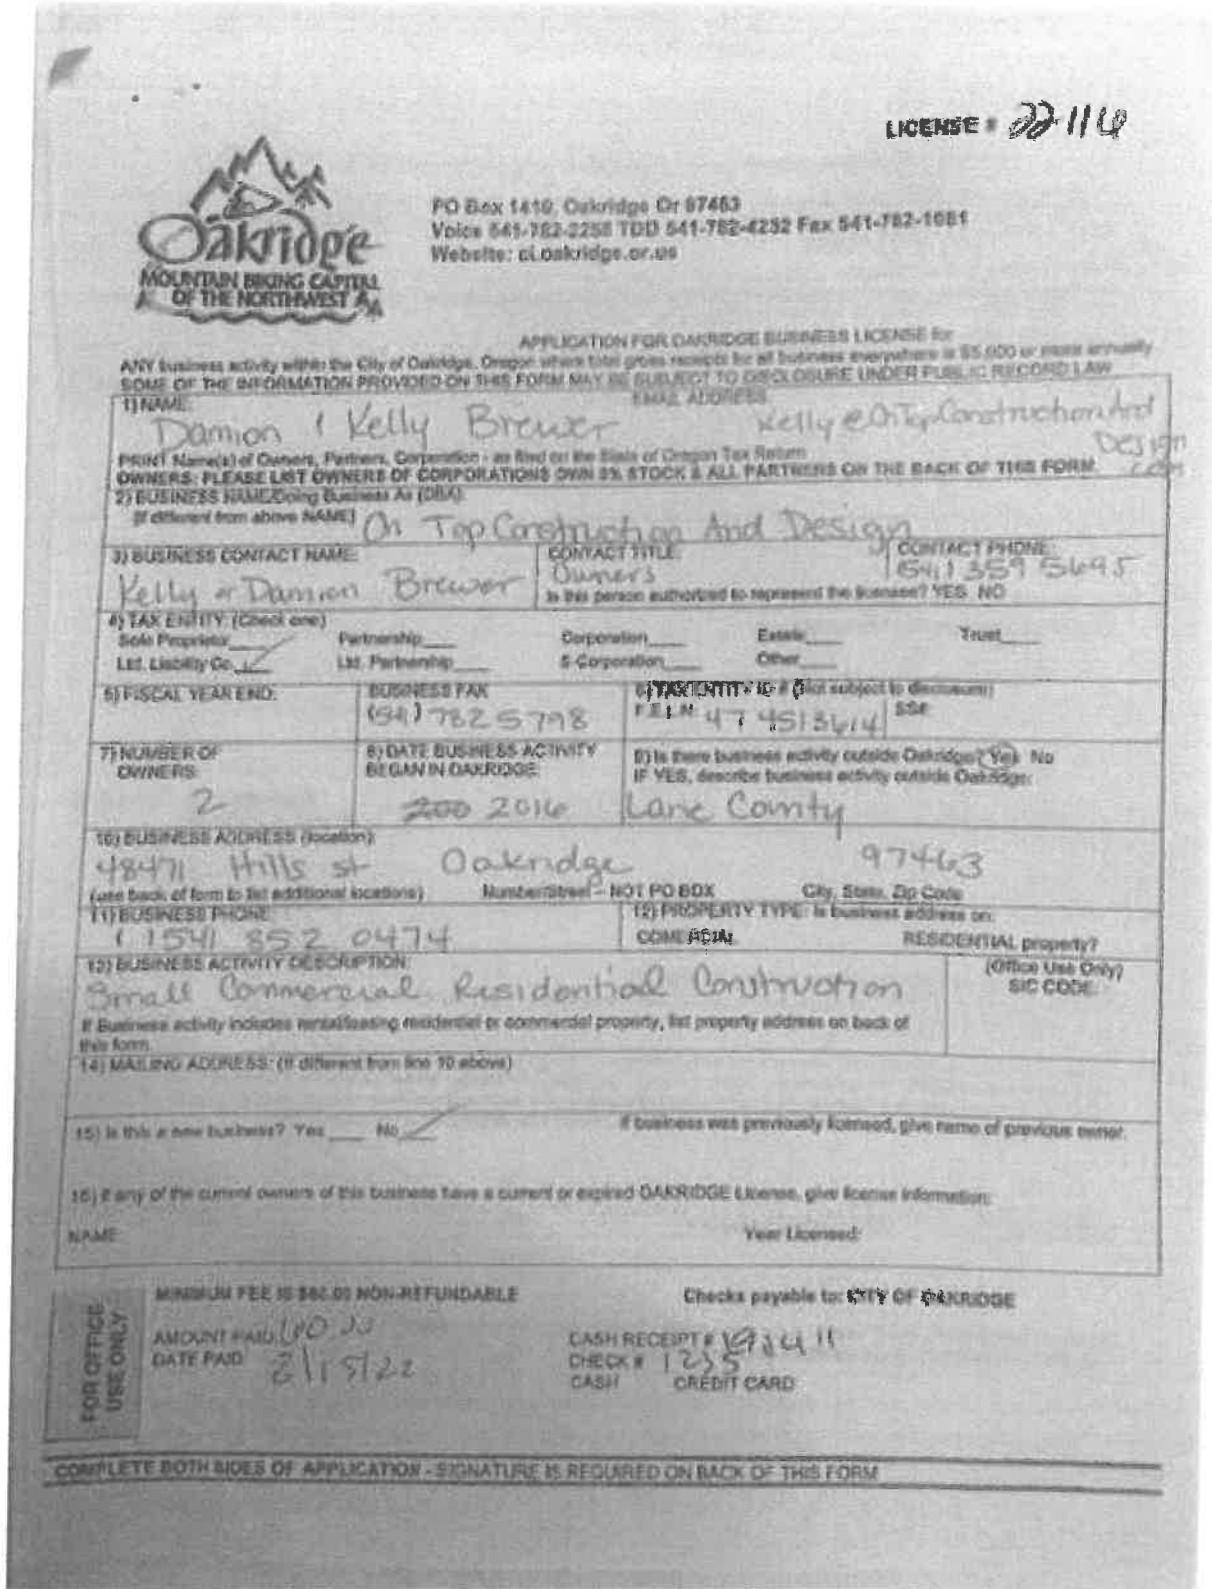 LICENSE # 22-116
Oakridge
MOUNTAIN BIKING CAPITAL
OF THE NORTHWEST
PO Box 1410, Oakridge Or 97463
Voice 541-782-2258 TDD 541-782-4232 Fax 541-782-1081
Website: ci.oakridge.or.us
APPLICATION FOR OAKRIDGE BUSINESS LICENSE for
ANY business activity within the City of Oakridge, Oregon where total gross receipts for all business everywhere is $5,000 or more annually
SOME OF THE INFORMATION PROVIDED ON THIS FORM MAY BE SUBJECT TO DISCLOSURE UNDER PUBLIC RECORD LAW
1) NAME: EMAIL ADDRESS:
Damion & Kelly Brewer Kelly@OnTopConstructionAnd
Design
.com
PRINT Name(s) of Owners, Partners, Corporation - as filed on the State of Oregon Tax Return
OWNERS: PLEASE LIST OWNERS OF CORPORATIONS OWN 5% STOCK & ALL PARTNERS ON THE BACK OF THIS FORM.
2) BUSINESS NAME/Doing Business As (DBA):
(if different from above NAME) On Top Construction And Design
3) BUSINESS CONTACT NAME: CONTACT TITLE: CONTACT PHONE:
Kelly or Damion Brewer Owners (541) 359 5695
Is this person authorized to represent the licensee? YES NO
4) TAX ENTITY: (Check one)
Sole Proprietor___ Partnership___ Corporation___ Estate___ Trust___
Ltd. Liability Co.✓ Ltd. Partnership___ S-Corporation___ Other___
5) FISCAL YEAR END: BUSINESS FAX 6) TAX ENTITY ID # (not subject to disclosure)
(541) 782 5798 F.E.I.N. 47 4513614 SS#
7) NUMBER OF OWNERS: 8) DATE BUSINESS ACTIVITY BEGAN IN OAKRIDGE: 9) Is there business activity outside Oakridge? Yes No
IF YES, describe business activity outside Oakridge:
2 200 2016 Lane County
10) BUSINESS ADDRESS (location):
48471 Hills st Oakridge 97463
(use back of form to list additional locations) Number/Street – NOT PO BOX City, State, Zip Code
11) BUSINESS PHONE: 12) PROPERTY TYPE: Is business address on:
1 (541 852 0474 RESIDENTIAL property?
13) BUSINESS ACTIVITY DESCRIPTION: (Office Use Only)
SIC CODE:
Small Commercial Residential Construction
If Business activity includes rental/leasing residential or commercial property, list property address on back of
this form.
14) MAILING ADDRESS: (If different from line 10 above)
15) Is this a new business? Yes ___ No ✓ If business was previously licensed, give name of previous owner.
16) If any of the current owners of this business have a current or expired OAKRIDGE License, give license information:
NAME: Year Licensed:
FOR OFFICE
USE ONLY
MINIMUM FEE IS $60.00 NON-REFUNDABLE Checks payable to: CITY OF OAKRIDGE
AMOUNT PAID CASH RECEIPT #
DATE PAID 2/15/22 CHECK # 1235
CASH CREDIT CARD
COMPLETE BOTH SIDES OF APPLICATION - SIGNATURE IS REQUIRED ON BACK OF THIS FORM